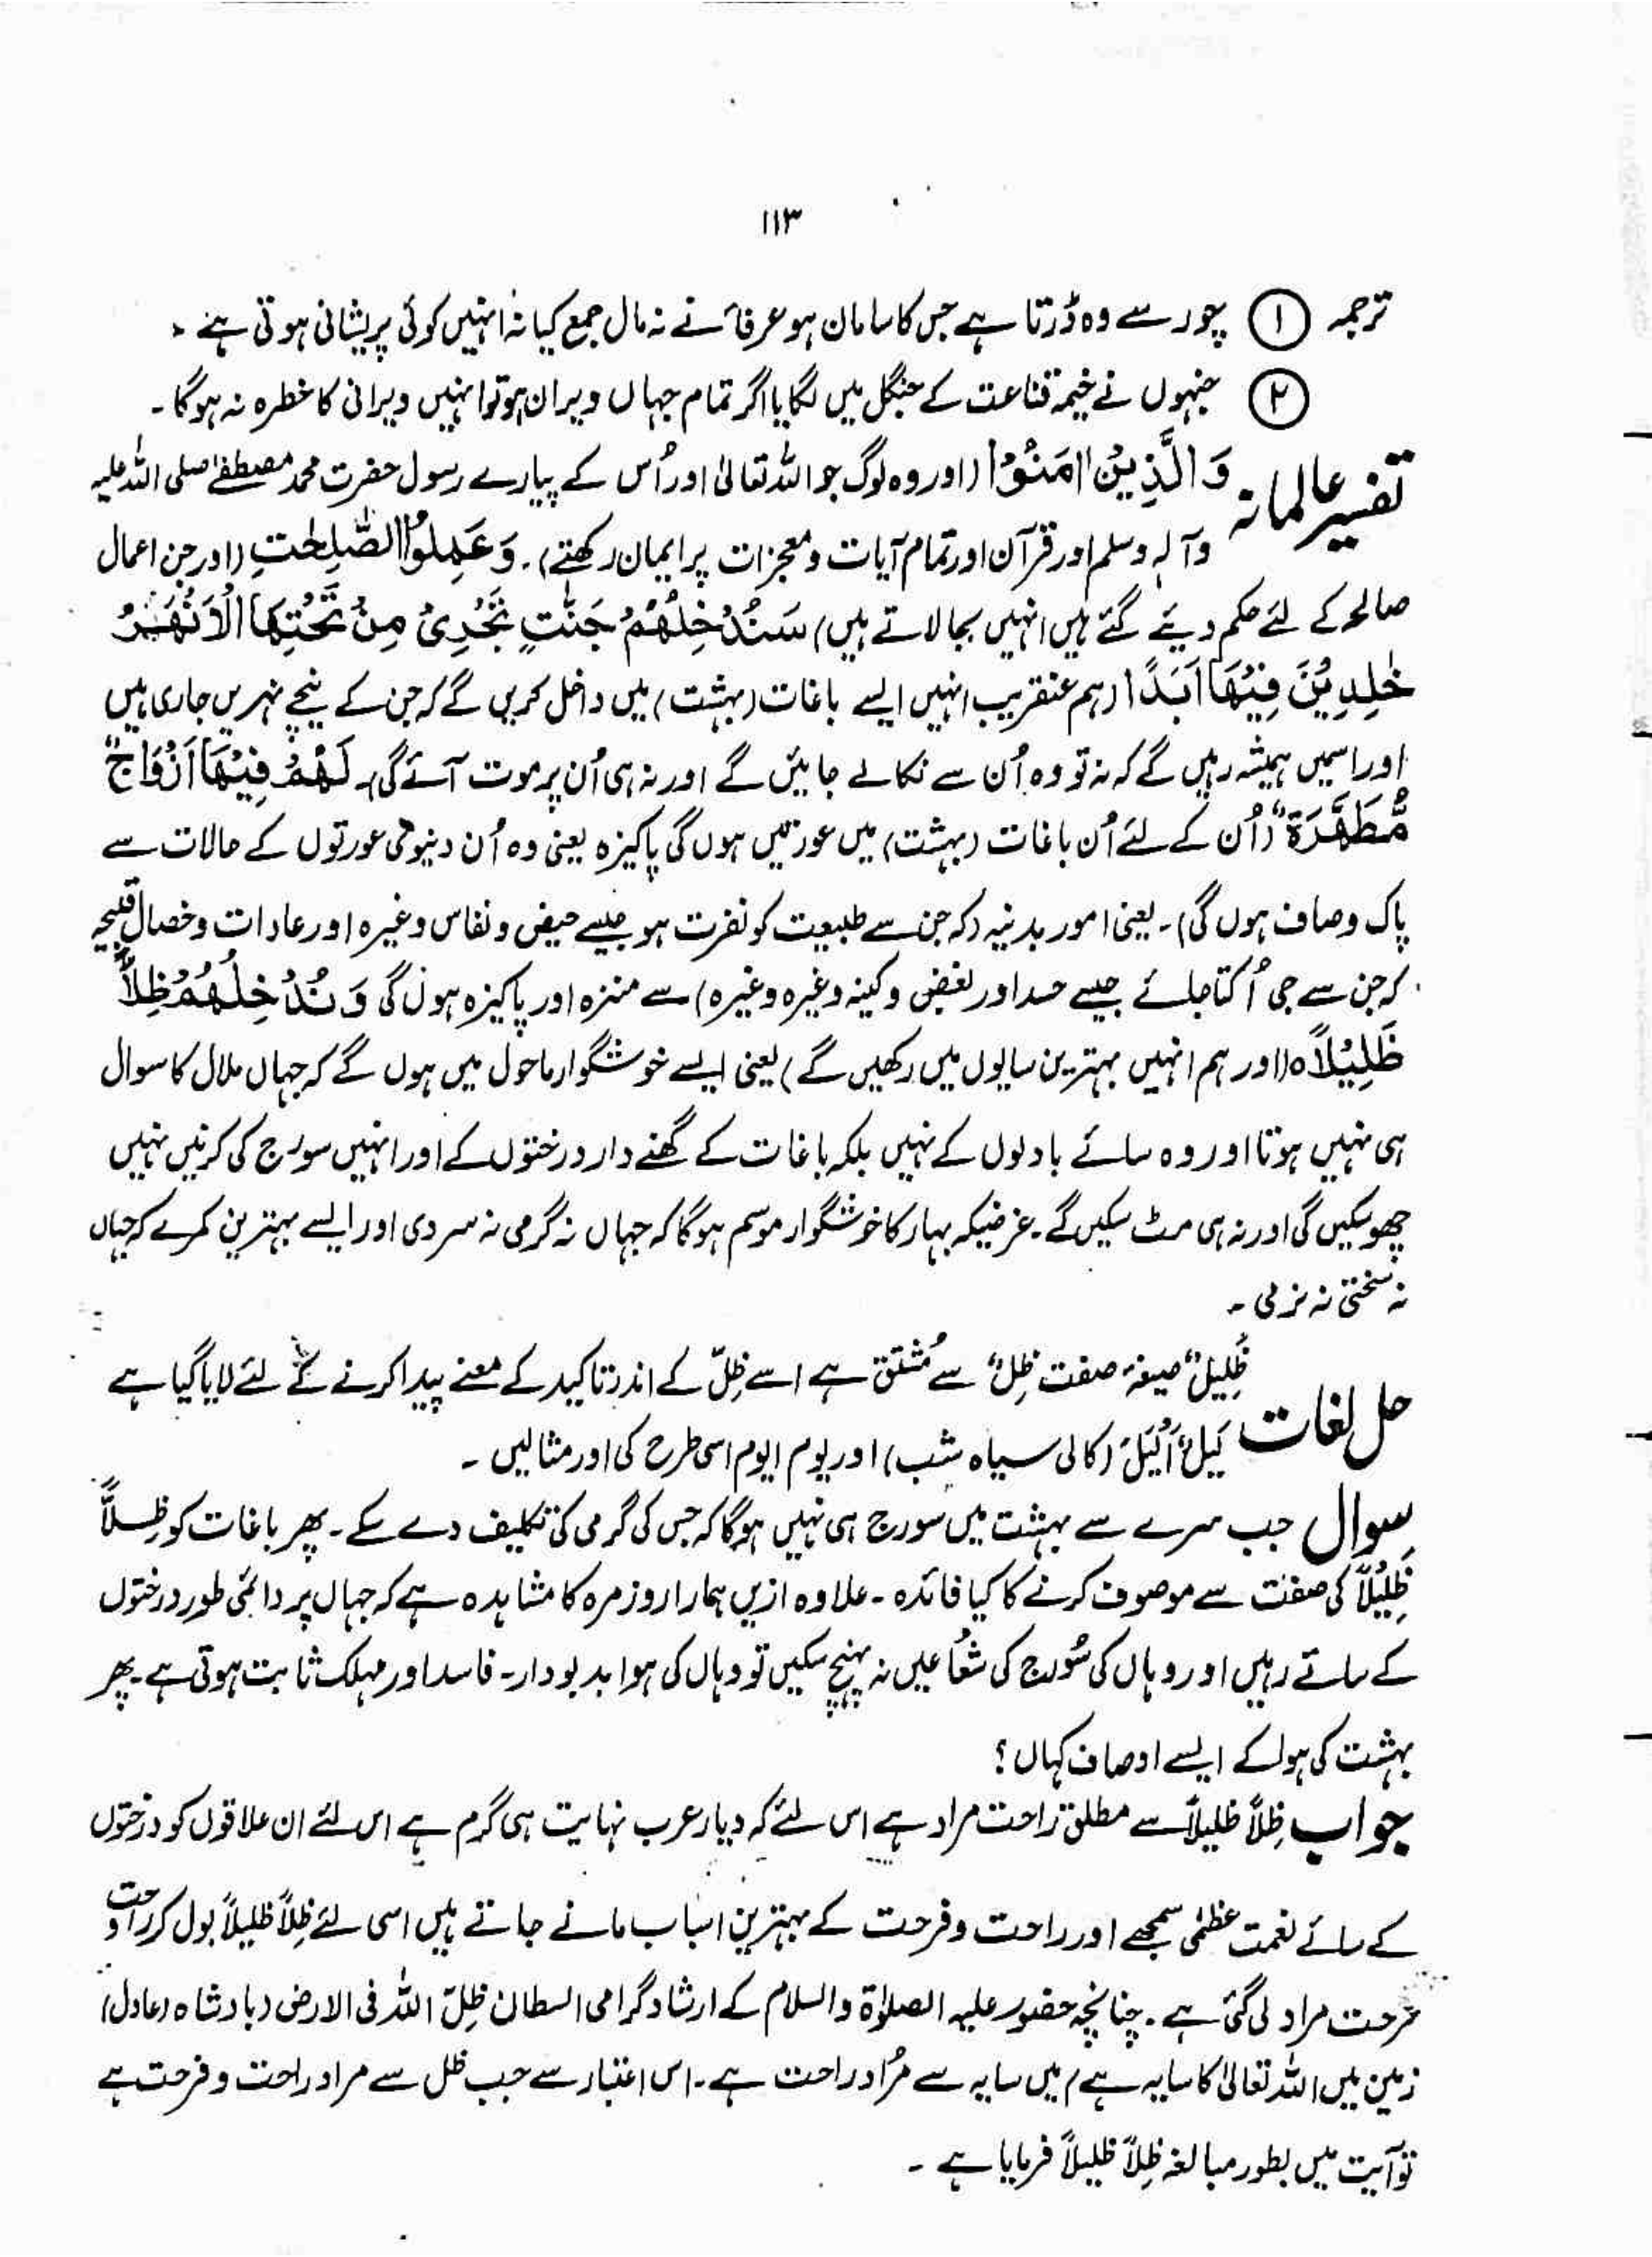 ۱۱۳
ترجمہ ① چور سے وہ ڈرتا ہے جس کا سامان ہو عرفا نے نہ مال جمع کیا نہ انہیں کوئی پریشانی ہوتی ہے۔
② جنہوں نے خیمہ قناعت کے جنگل میں لگایا اگر تمام جہاں ویران ہو تو انہیں ویرانی کا خطرہ نہ ہوگا۔
تفسیر عالمانہ وَالَّذِیْنَ اٰمَنُوْا (اور وہ لوگ جو اللہ تعالیٰ اور اُس کے پیارے رسول حضرت محمد مصطفےٰ صلی اللہ علیہ
وآلہٖ وسلم اور قرآن اور تمام آیات و معجزات پر ایمان رکھتے)۔ وَعَمِلُوا الصّٰلِحٰتِ (اور جن اعمال
صالحہ کے لئے حکم دیئے گئے ہیں انہیں بجا لاتے ہیں) سَنُدْخِلُهُمْ جَنّٰتٍ تَجْرِیْ مِنْ تَحْتِهَا الْاَنْهٰرُ
خٰلِدِیْنَ فِیْهَا اَبَدًا (ہم عنقریب انہیں ایسے باغات (بہشت) میں داخل کریں گے کہ جن کے نیچے نہریں جاری ہیں
اور اسمیں ہمیشہ رہیں گے کہ نہ تو وہ اُن سے نکالے جائیں گے اور نہ ہی اُن پر موت آئے گی)۔ لَهُمْ فِیْهَا اَزْوَاجٌ
مُّطَهَّرَةٌ (اُن کے لئے اُن باغات (بہشت) میں عورتیں ہوں گی پاکیزہ یعنی وہ اُن دنیوی عورتوں کے حالات سے
پاک و صاف ہوں گی)۔ یعنی امور بدنیہ (کہ جن سے طبیعت کو نفرت ہو جیسے حیض و نفاس وغیرہ اور عادات و خصال قبیحہ
کہ جن سے جی اُکتا جائے جیسے حسد اور بغض و کینہ وغیرہ وغیرہ) سے منزہ اور پاکیزہ ہوں گی وَنُدْخِلُهُمْ ظِلًّا
ظَلِیْلًا ہ (اور ہم انہیں بہترین سایوں میں رکھیں گے) یعنی ایسے خوشگوار ماحول میں ہوں گے کہ جہاں ملال کا سوال
ہی نہیں ہوتا اور وہ سائے بادلوں کے نہیں بلکہ باغات کے گھنے دار درختوں کے اور انہیں سورج کی کرنیں نہیں
چھو سکیں گی اور نہ ہی مٹ سکیں گے۔ غرضیکہ بہار کا خوشگوار موسم ہوگا کہ جہاں نہ گرمی نہ سردی اور ایسے بہترین کمرے کہ جہاں
نہ سختی نہ نرمی۔
حل لغات ظَلِیلٌ صیغۂ صفت ظِلٌّ سے مُشتق ہے اسے ظِلّ کے اندر تاکید کے معنے پیدا کرنے کے لئے لایا گیا ہے
لَیلٌ اَلْیَلُ (کالی سیاہ شب) اور یوم ایوم اسی طرح کی اور مثالیں۔
سوال جب سرے سے بہشت میں سورج ہی نہیں ہوگا کہ جس کی گرمی کی تکلیف دے سکے۔ پھر باغات کو ظِلًّا
ظَلِیْلًا کی صفت سے موصوف کرنے کا کیا فائدہ۔ علاوہ ازیں ہمارا روزمرہ کا مشاہدہ ہے کہ جہاں پر دائمی طور درختوں
کے سائے رہیں اور وہاں کی سُورج کی شُعاعیں نہ پہنچ سکیں تو وہاں کی ہوا بدبودار۔ فاسد اور مہلک ثابت ہوتی ہے۔ پھر
بہشت کی ہوا کے ایسے اوصاف کہاں؟
جواب ظِلًّا ظلیلاً سے مطلق راحت مراد ہے اس لئے کہ دیار عرب نہایت ہی گرم ہے اس لئے ان علاقوں کو درختوں
کے سائے نعمت عظمٰی سمجھے اور راحت و فرحت کے بہترین اسباب مانے جاتے ہیں اسی لئے ظِلًّا ظلیلًا بول کر راحت و
فرحت مراد لی گئی ہے۔ چنانچہ حضور علیہ الصلوٰۃ والسلام کے ارشاد گرامی السطان ظِلّ اللہ فی الارض (بادشاہ (عادل)
زمین میں اللہ تعالیٰ کا سایہ ہے) میں سایہ سے مُراد راحت ہے۔ اس اعتبار سے جب ظل سے مراد راحت و فرحت ہے
تو آیت میں بطور مبالغہ ظِلًّا ظلیلًا فرمایا ہے۔